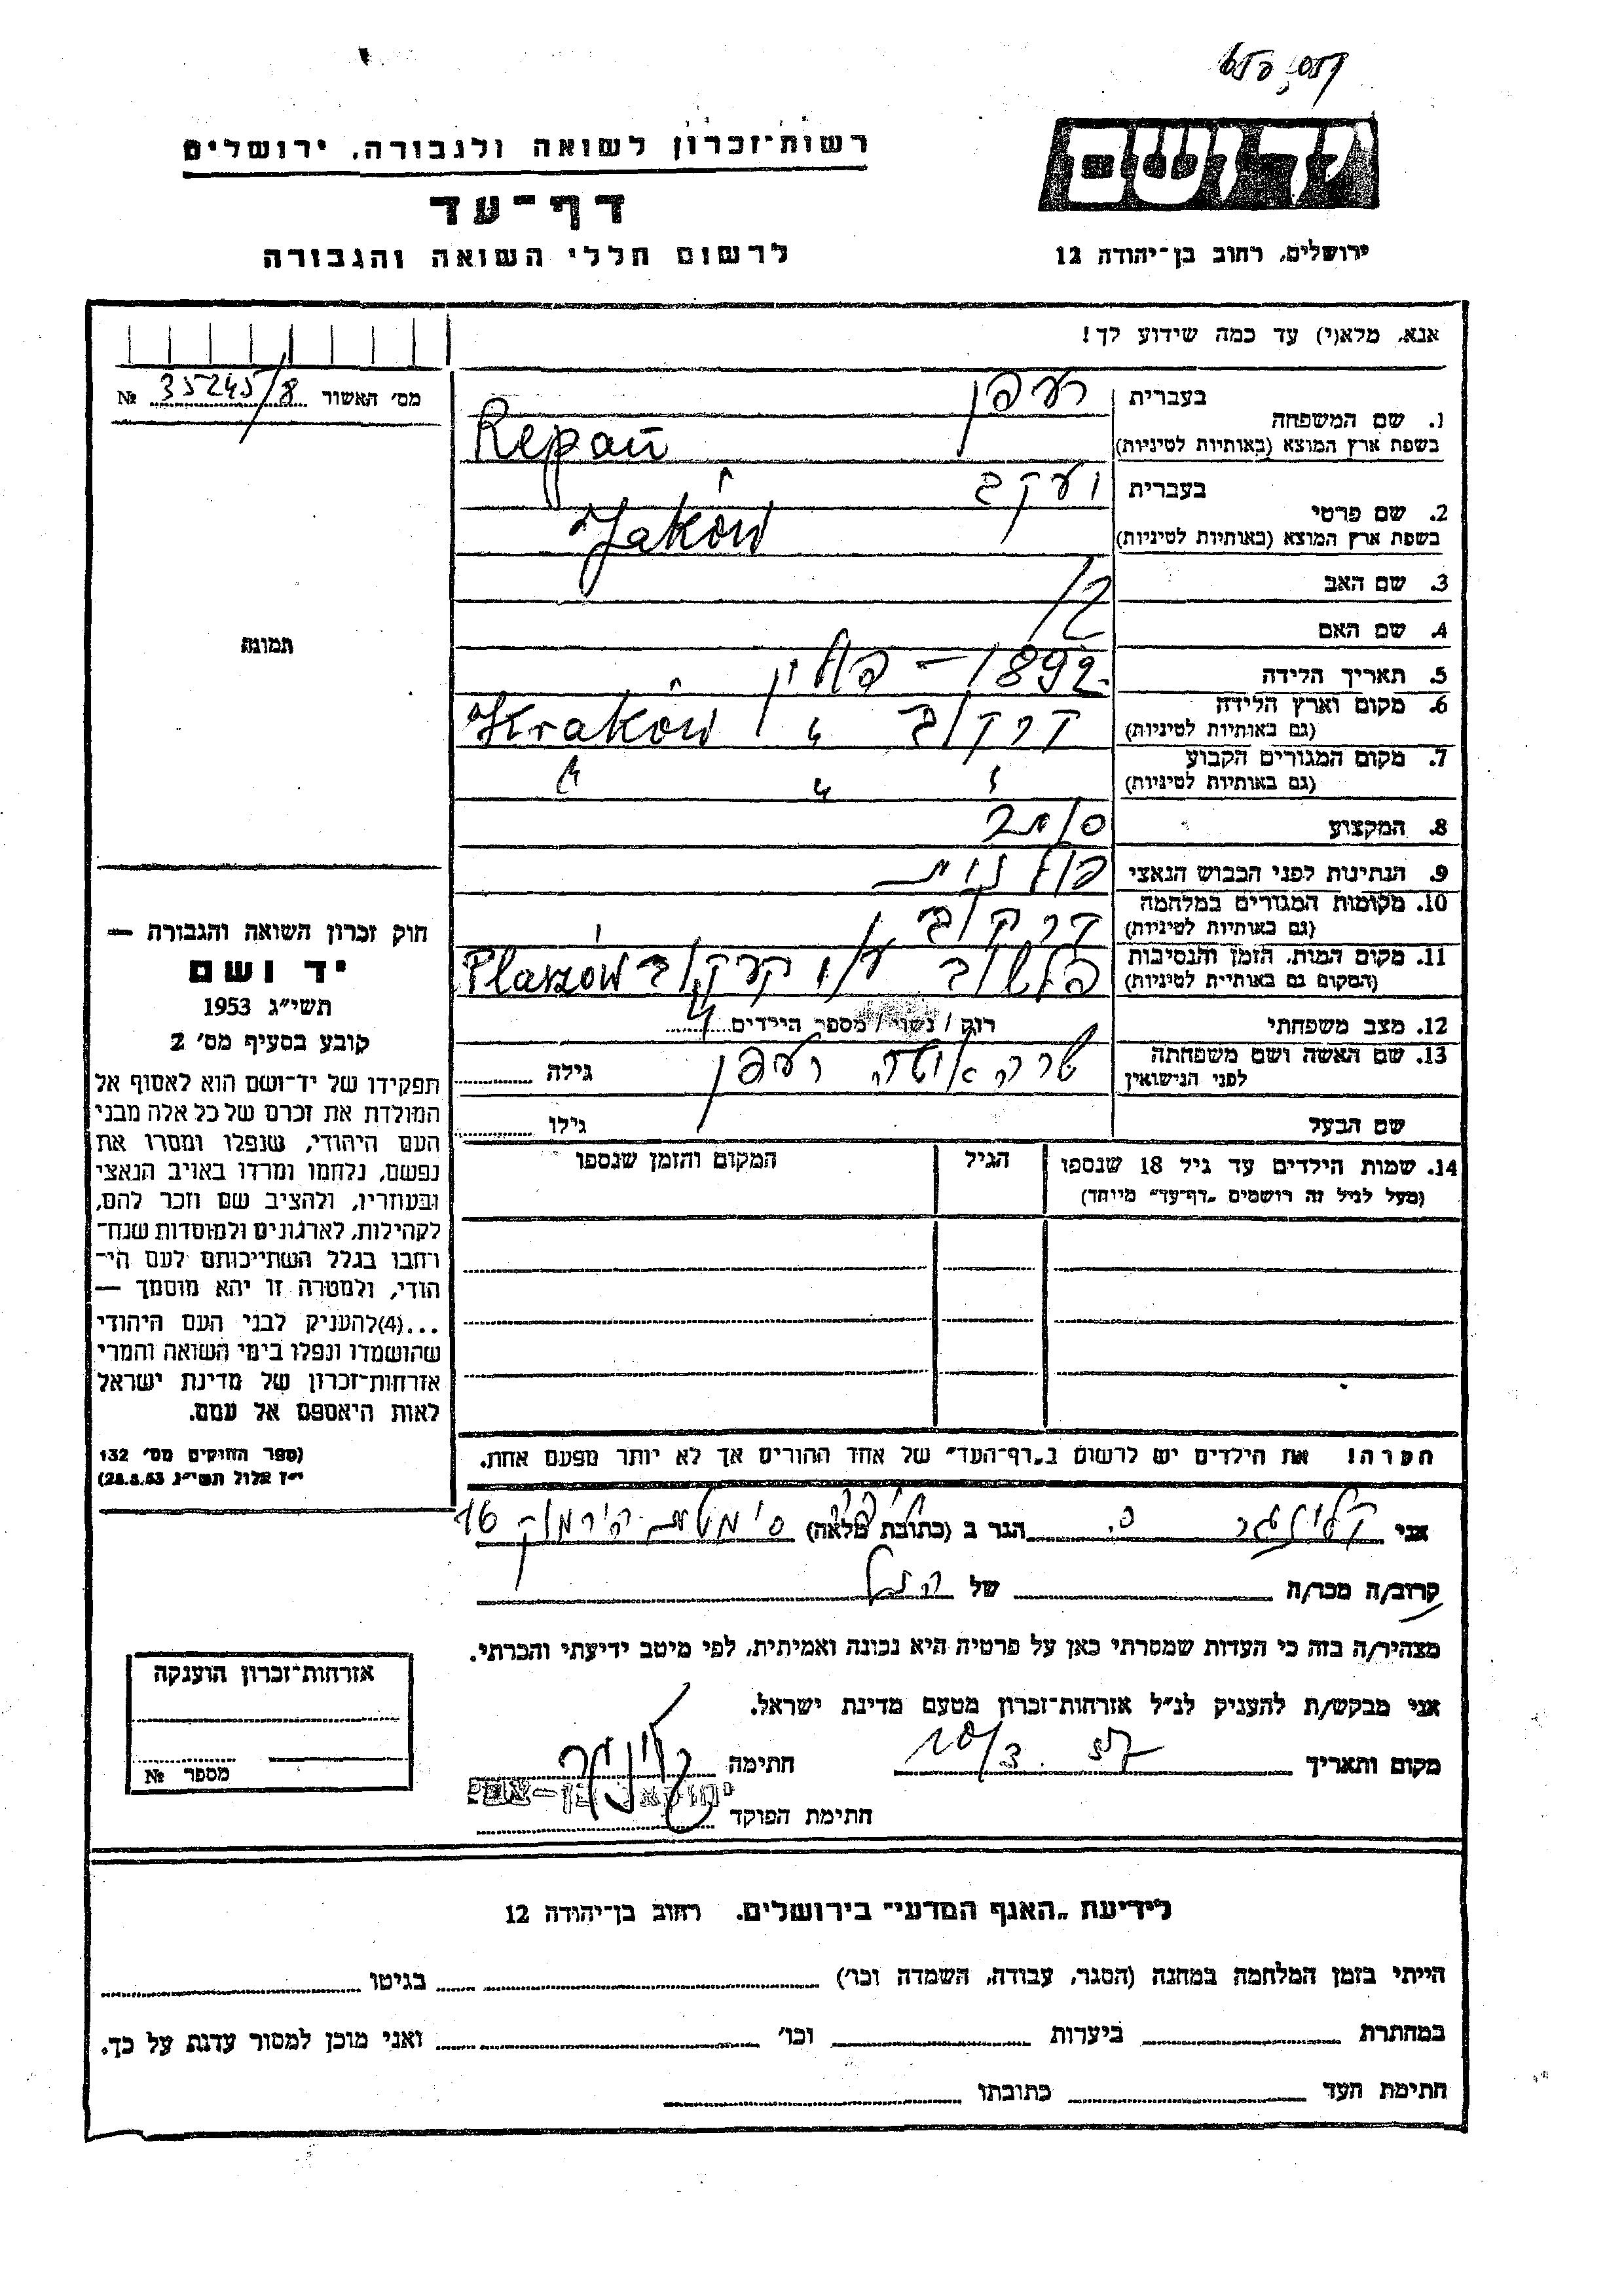 רשות־זכרון לשואה ולגבורה, ירושלים
יד ושם
דף־עד
לרשום חללי השואה והגבורה
ירושלים, רחוב בן־יהודה 12
אנא, מלא(י) עד כמה שידוע לך!
מס' האשור 35245/8 №
תמונה
1. שם המשפחה בעברית רעפן
בשפת ארץ המוצא (באותיות לטיניות) Repań
2. שם פרטי בעברית יעקב
בשפת ארץ המוצא (באותיות לטיניות) Jaków
3. שם האב
4. שם האם
5. תאריך הלידה 1892 – פולין
6. מקום וארץ הלידה קרקוב Kraków
(גם באותיות לטיניות)
7. מקום המגורים הקבוע " " "
(גם באותיות לטיניות)
8. המקצוע סוחר
9. הנתינות לפני הכבוש הנאצי פולנית
10. מקומות המגורים במלחמה קרקוב
(גם באותיות לטיניות)
11. מקום המות, הזמן והנסיבות פלשוב ע"י קרקוב Płaszów
(המקום גם באותיות לטיניות)
12. מצב משפחתי רוק / נשוי / מספר הילדים 4
13. שם האשה ושם משפחתה רעפן גילה
לפני הנישואין
שם הבעל גילו
14. שמות הילדים עד גיל 18 שנספו הגיל המקום והזמן שנספו
(מעל לגיל זה רושמים „דף־עד" מיוחד)
חוק זכרון השואה והגבורה —
יד ושם
תשי"ג 1953
קובע בסעיף מס' 2
תפקידו של יד־ושם הוא לאסוף אל
המולדת את זכרם של כל אלה מבני
העם היהודי, שנפלו ומסרו את
נפשם, נלחמו ומרדו באויב הנאצי
ובעוזריו, ולהציב שם וזכר להם,
לקהילות, לארגונים ולמוסדות שנח־
רבו בגלל השתייכותם לעם הי־
הודי, ולמטרה זו יהא מוסמך —
...(4)להעניק לבני העם היהודי
שהושמדו ונפלו בימי השואה והמרי
אזרחות־זכרון של מדינת ישראל
לאות היאספם אל עמם.
(ספר החוקים מס' 132
י"ז אלול תשי"ג 28.8.53)
הערה! את הילדים יש לרשום ב„דף־העד" של אחד ההורים אך לא יותר מפעם אחת.
אני קלינגר פ. הגר ב (כתובת מלאה) חיפה סימטת הירמוק 16
קרוב/ה מכר/ה של הנ"ל
מצהיר/ה בזה כי העדות שמסרתי כאן על פרטיה היא נכונה ואמיתית, לפי מיטב ידיעתי והכרתי.
אני מבקש/ת להעניק לנ"ל אזרחות־זכרון מטעם מדינת ישראל.
מקום ותאריך 10/3. חתימה קלינגר
חתימת הפוקד
אזרחות־זכרון הוענקה
מספר №
לידיעת „האגף המדעי" בירושלים, רחוב בן־יהודה 12
הייתי בזמן המלחמה במחנה (הסגר, עבודה, השמדה וכו') בגיטו
במחתרת ביערות וכו' ואני מוכן למסור עדות על כך.
חתימת העד כתובתו